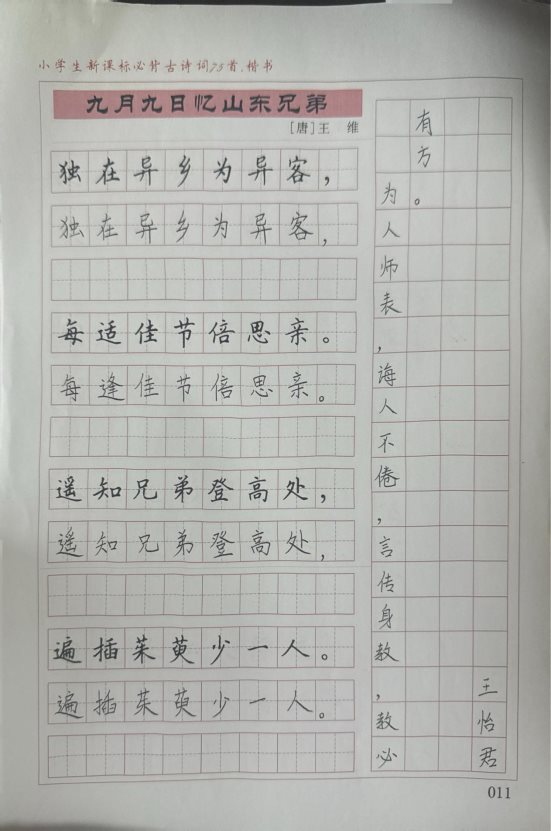 小学生新课标必背古诗词75首.楷书
九月九日忆山东兄弟
[唐]王 维
独在异乡为异客，
独在异乡为异客，
每适佳节倍思亲。
每逢佳节倍思亲。
遥知兄弟登高处，
遥知兄弟登高处，
遍插茱萸少一人。
遍插茱萸少一人。
为人师表，诲人不倦，言传身教，教必
有方。
王怡君
011